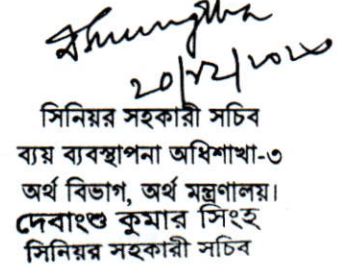 ২০/১২/২০২০
সিনিয়র সহকারী সচিব
ব্যয় ব্যবস্থাপনা অধিশাখা-৩
অর্থ বিভাগ, অর্থ মন্ত্রণালয়।
দেবাংশু কুমার সিংহ
সিনিয়র সহকারী সচিব